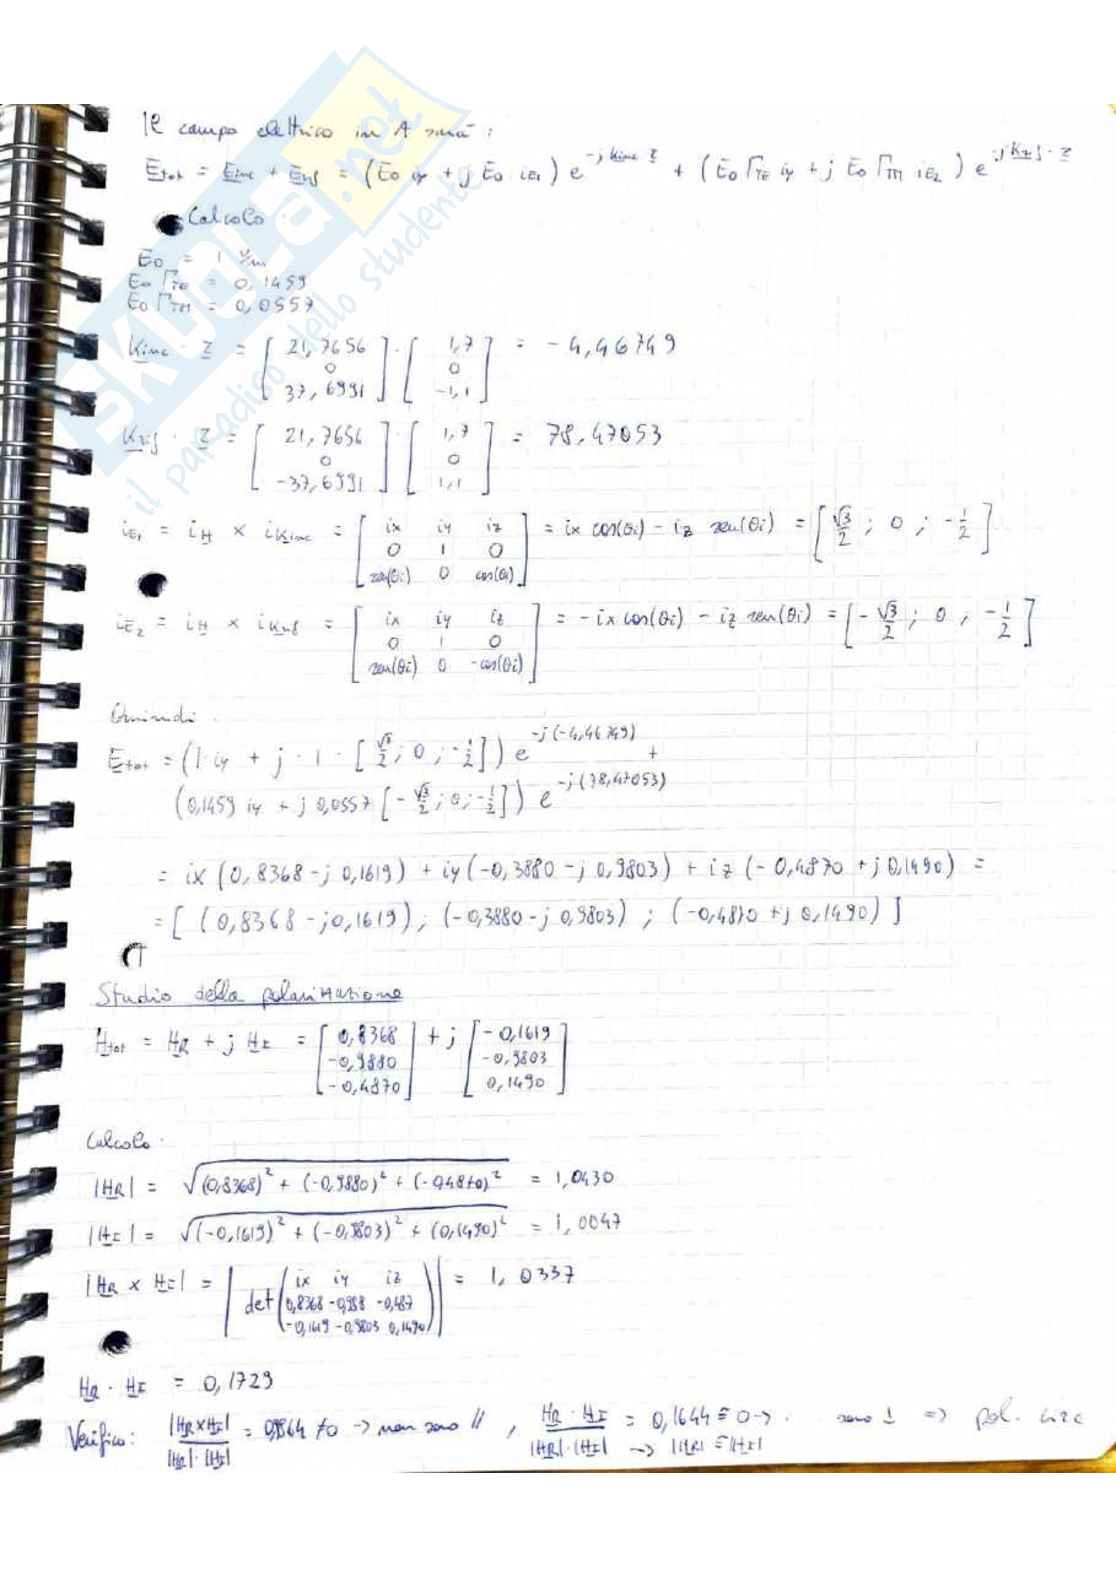 Il campo elettrico in A sarà:
Etot = Einc + Erif = (E0 iy + j E0 iE1) e^-j Kinc·z + (E0 ΓTE iy + j E0 ΓTM iE2) e^-j Krif·z
Calcolo
E0 = 1 V/m
E0 ΓTE = 0,1459
E0 ΓTM = 0,0557
Kinc · z = [21,7656 0 37,6991] · [1,7 0 -1,1] = -4,46749
Krif · z = [21,7656 0 -37,6991] · [1,7 0 1,1] = 78,47053
iE1 = iH × iKinc = [ix iy iz 0 1 0 sen(θi) 0 cos(θi)] = ix cos(θi) - iz sen(θi) = [√3/2 ; 0 ; -1/2]
iE2 = iH × iKrif = [ix iy iz 0 1 0 sen(θi) 0 -cos(θi)] = -ix cos(θi) - iz sen(θi) = [-√3/2 ; 0 ; -1/2]
Quindi.
Etot = (1· iy + j · 1 · [√3/2 ; 0 ; -1/2]) e^-j(-4,46749) +
(0,1459 iy + j 0,0557 [-√3/2 ; 0 ; -1/2]) e^-j(78,47053)
= ix (0,8368 - j 0,1619) + iy (-0,3880 - j 0,9803) + iz (-0,4870 + j 0,1490) =
= [ (0,8368 - j0,1619) ; (-0,3880 - j 0,9803) ; (-0,4870 + j 0,1490) ]
Studio della polarizzazione
Htot = HR + j HI = [0,8368 -0,9880 -0,4870] + j [-0,1619 -0,9803 0,1490]
Calcolo.
|HR| = √(0,8368)² + (-0,9880)² + (-0,4870)² = 1,0430
|HI| = √(-0,1619)² + (-0,9803)² + (0,1490)² = 1,0047
|HR × HI| = |det(ix iy iz 0,8368 -0,988 -0,487 -0,1619 -0,9803 0,1490)| = 1,0337
HR · HI = 0,1729
Verifico: |HR×HI| / |HR|·|HI| = 0,9864 ≠0 → non sono // , HR · HI / |HR|·|HI| = 0,1644 ≅ 0 → . sono ⊥ ⇒ pol. circ
→ |HR| ≅ |HI|
SKUOLA.net
il paradiso dello studente